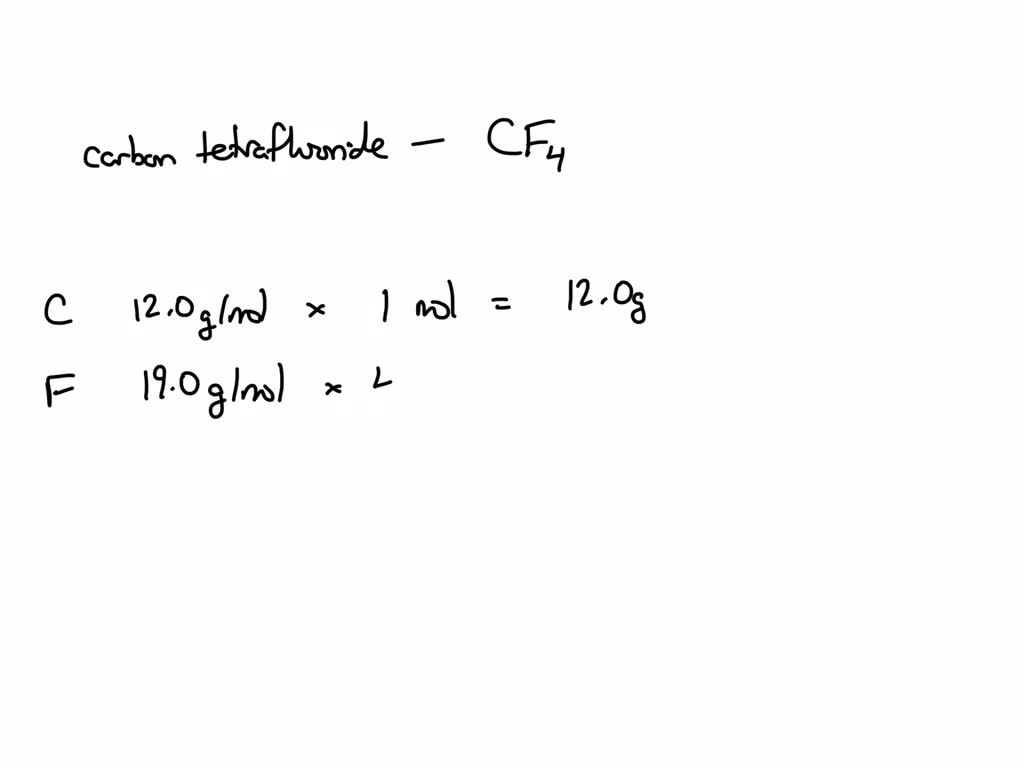 carbon tetrafluoride — CF₄
C 12.0 g/mol × 1 mol = 12.0g
F 19.0 g/mol ×